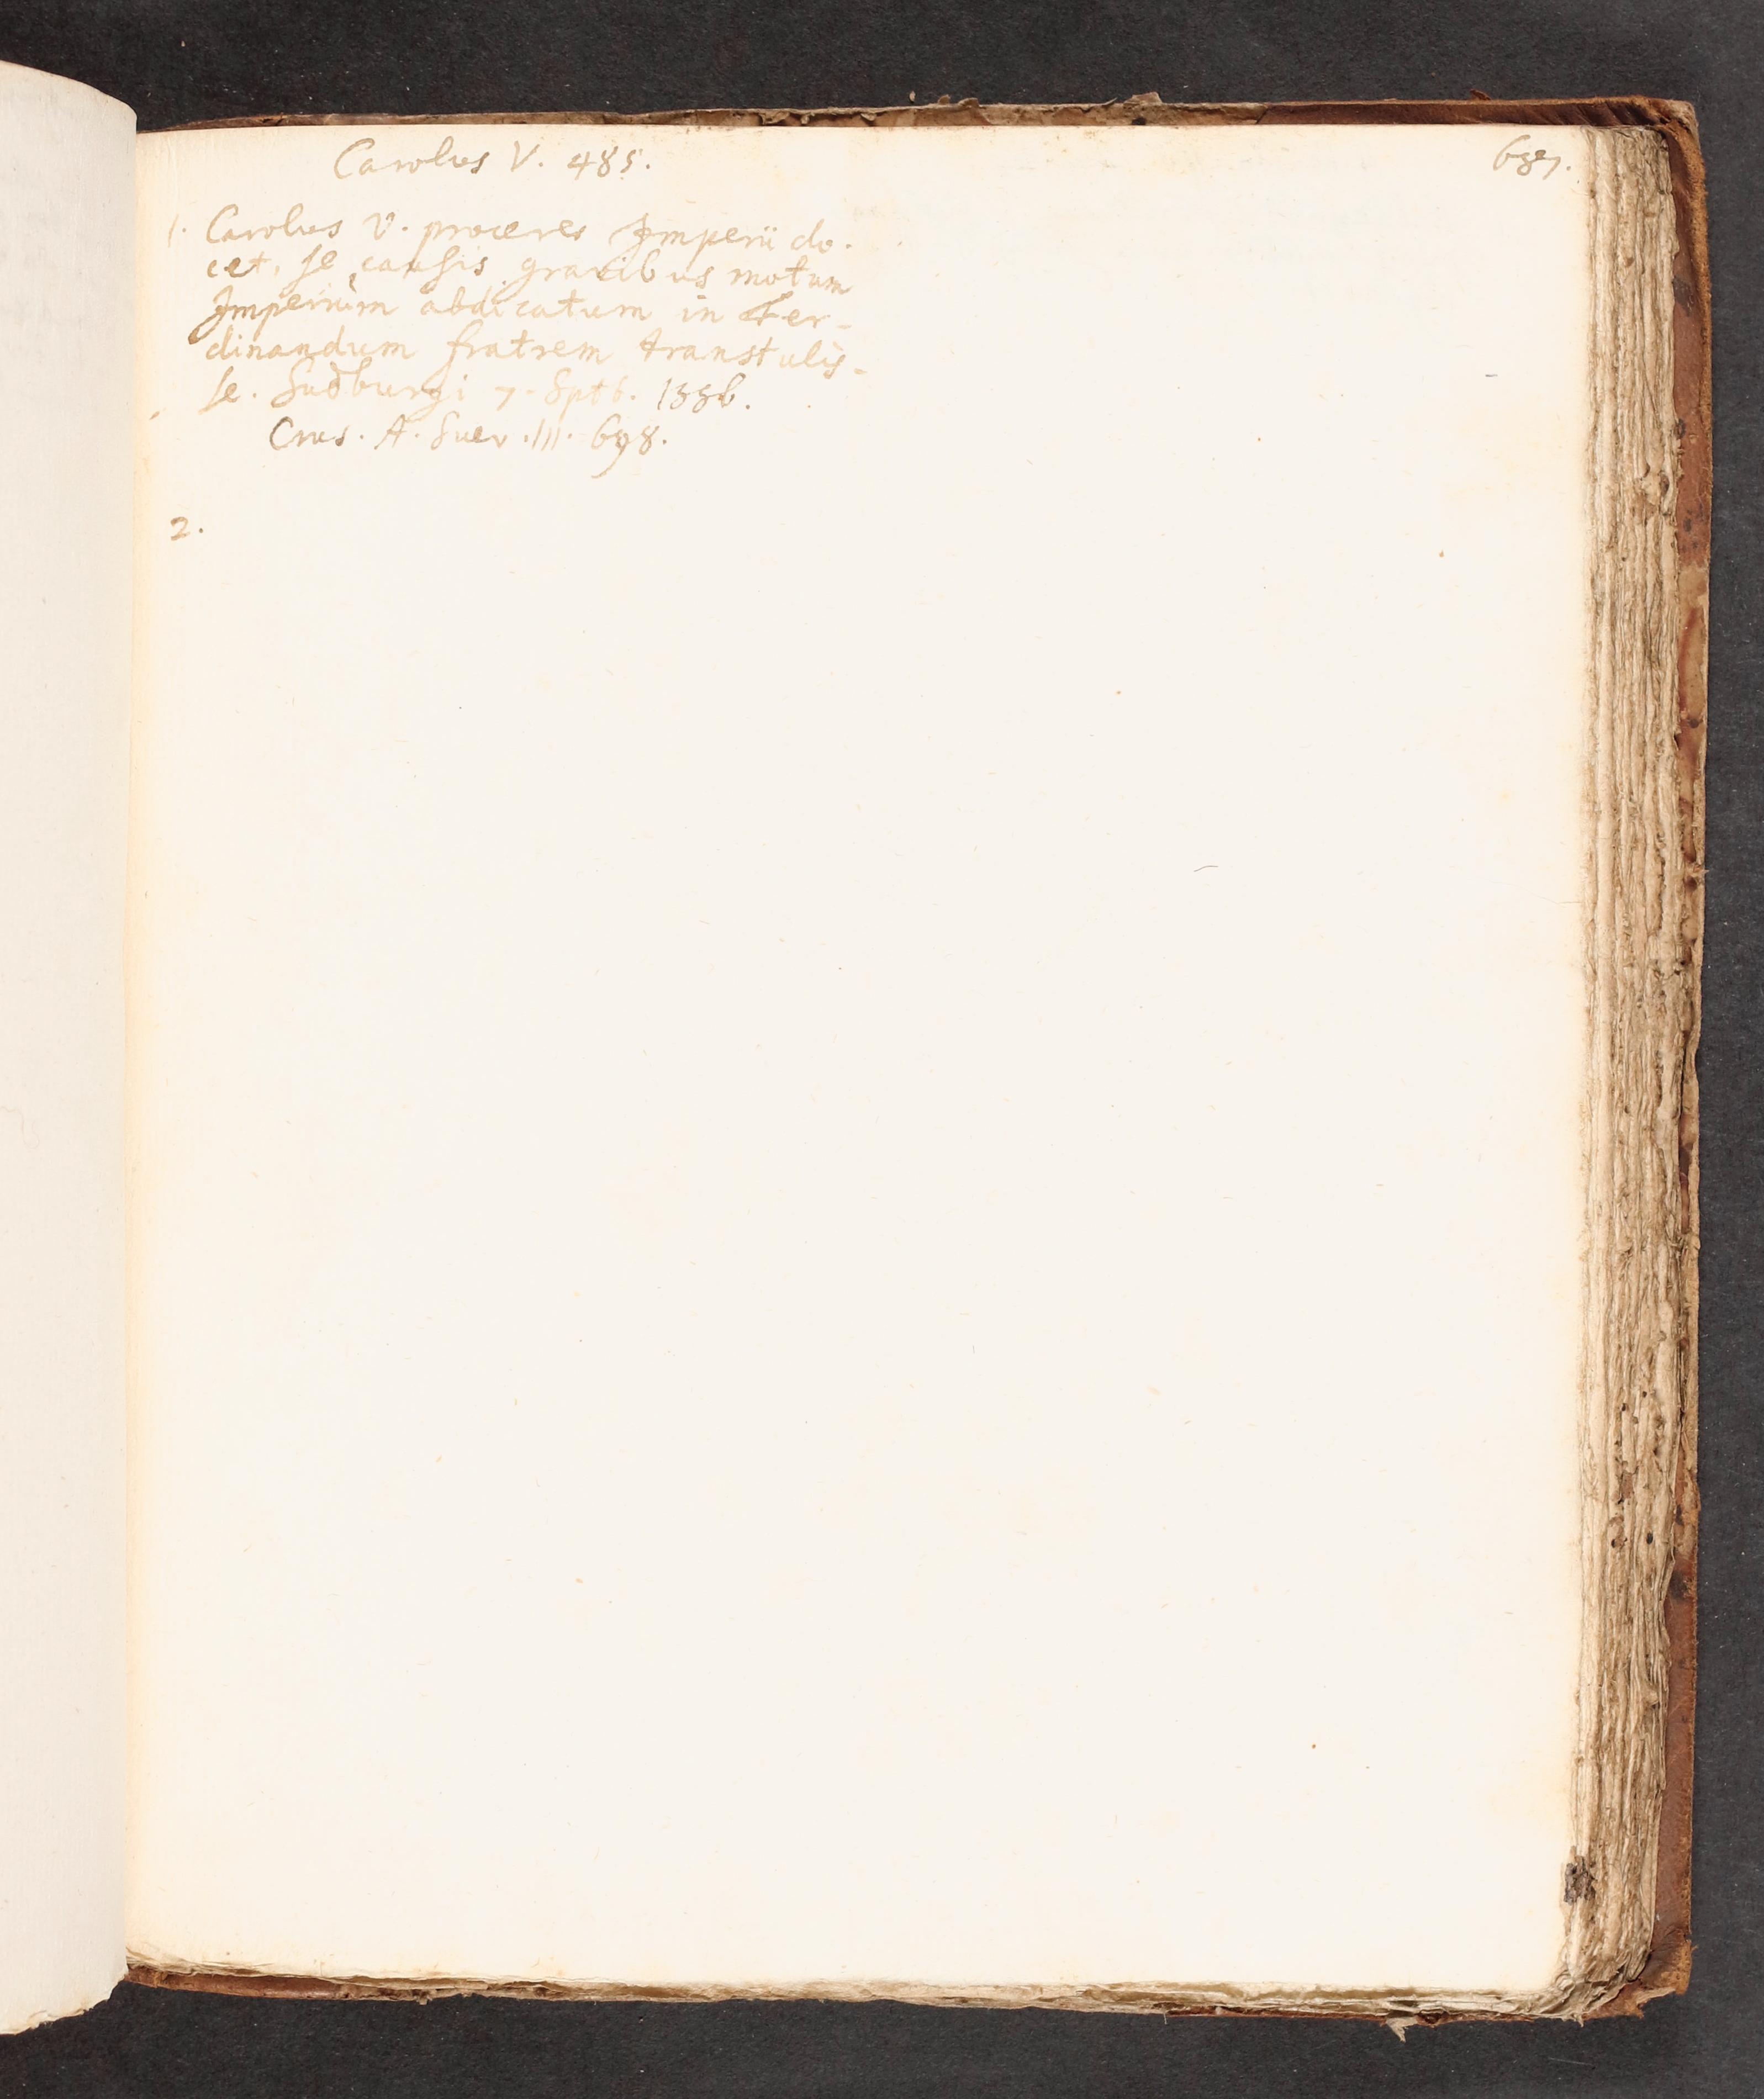 Carolus V. 485.
687.
1. Carolus V. proceres Imperii do-
cet, se causis gravibus motum
Imperium abdicatum in Fer-
dinandum fratrem transtulis-
se. Sudburgi 7. Sptb. 1556.
Crus. A. Suev. III. 698.
2.